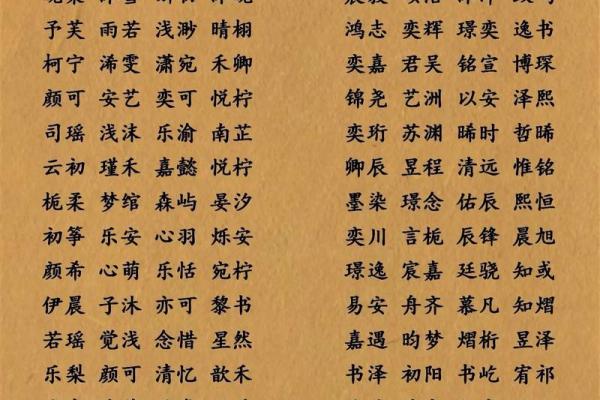 予芙 雨若 浅渺 晴栩 鸿志 奕辉 璟奕 逸书
柯宁 浠雯 潇宛 禾卿 奕嘉 君吴 铭宣 博琛
颜可 安艺 奕可 悦柠 锦尧 艺洲 以安 泽熙
司瑶 浅沫 乐渝 南芷 奕珩 苏渊 晞时 哲晞
云初 瑾禾 嘉懿 悦柠 卿辰 昱程 清远 惟铭
栀柔 梦绾 森屿 晏汐 墨染 璟念 佑辰 熙恒
初筝 乐安 心羽 烁安 奕川 言栀 辰锋 晨旭
颜希 心萌 乐恬 宛柠 璟逸 宸嘉 廷骁 知或
伊晨 子沐 亦可 黎书 易安 舟齐 慕凡 知熠
若瑶 觉浅 念惜 星然 嘉遇 昀梦 熠桁 昱泽
乐梨 颜可 清忆 歆禾 书泽 初阳 书屹 宥祁